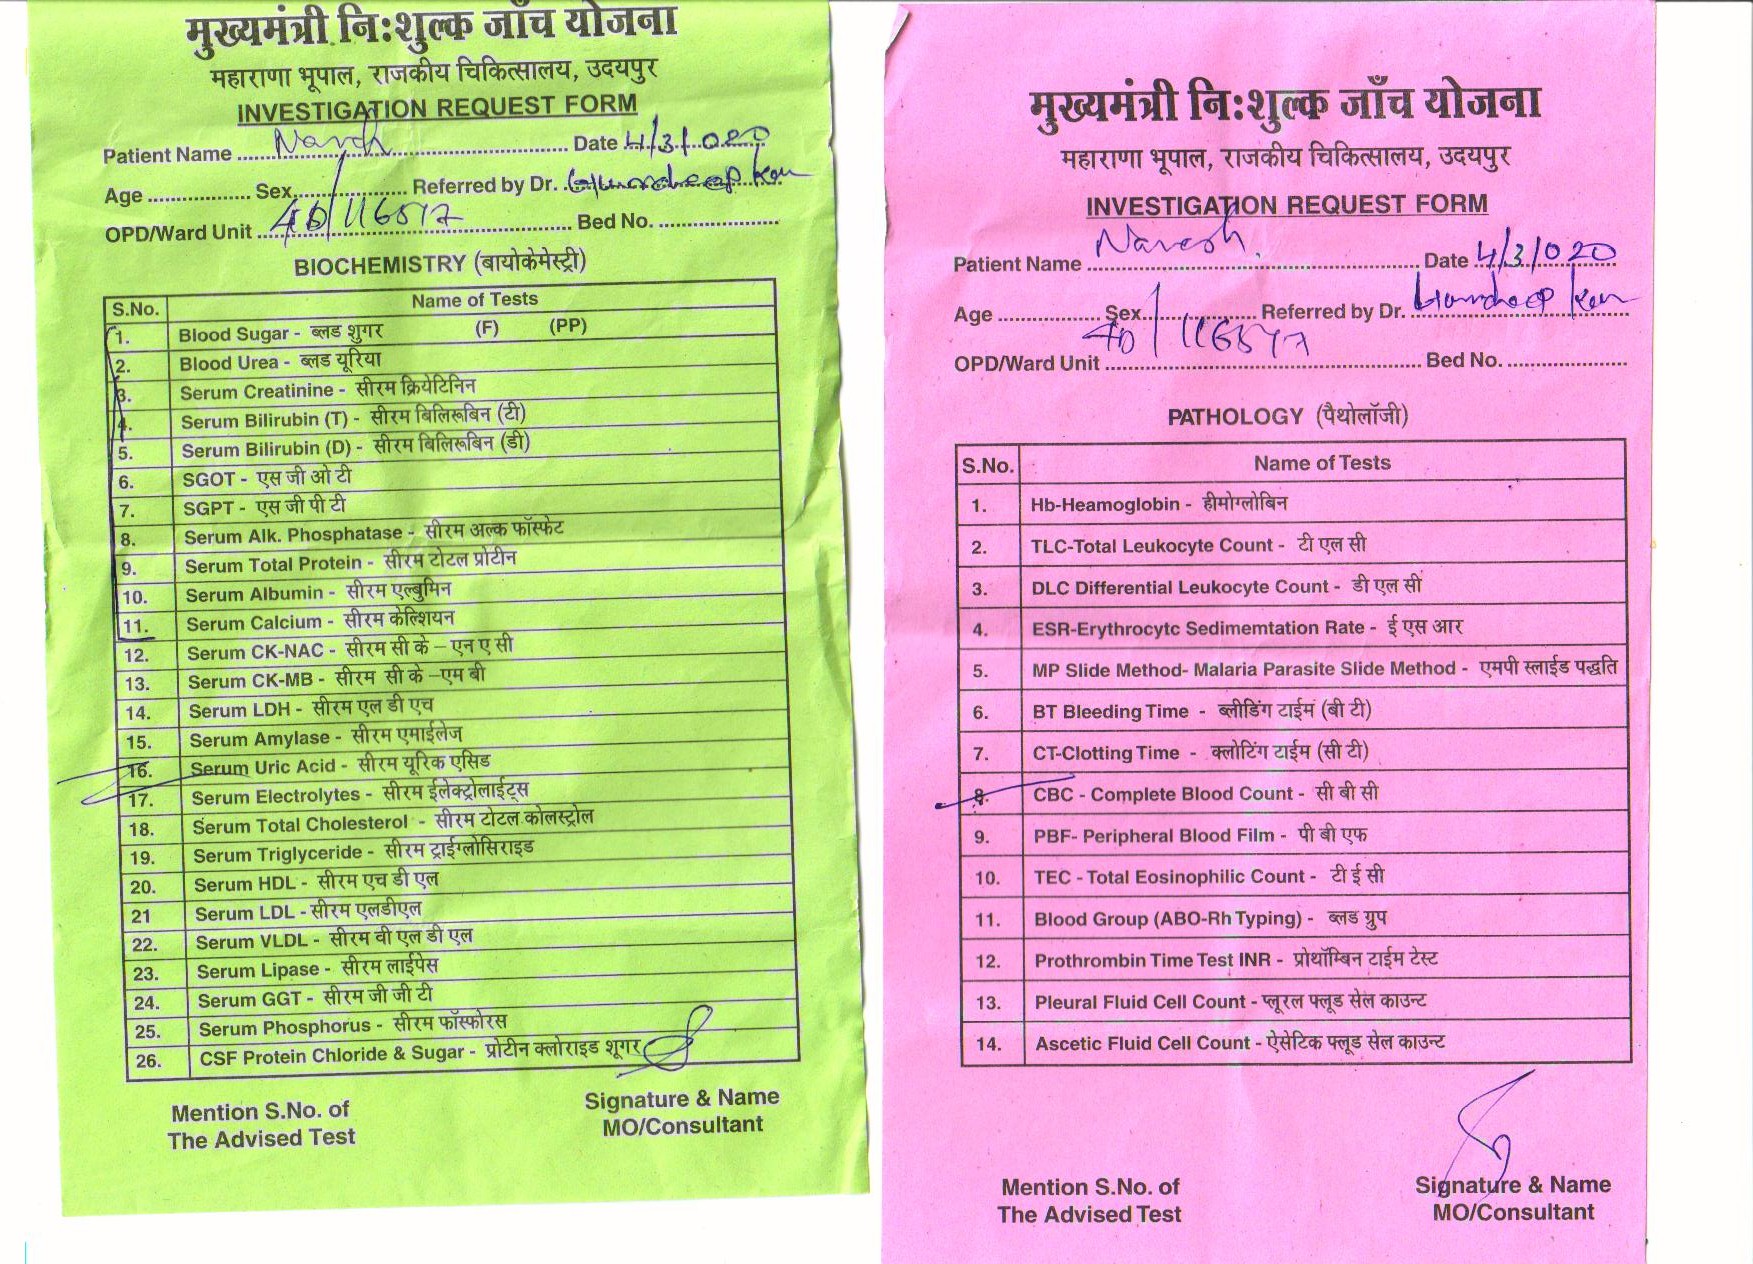 मुख्यमंत्री निःशुल्क जाँच योजना
महाराणा भूपाल, राजकीय चिकित्सालय, उदयपुर
INVESTIGATION REQUEST FORM
Patient Name Naresh Date 4/3/020
Age Sex Referred by Dr.
OPD/Ward Unit Bed No.
BIOCHEMISTRY (बायोकेमेस्ट्री)
S.No. Name of Tests
1. Blood Sugar - ब्लड शुगर (F) (PP)
2. Blood Urea - ब्लड यूरिया
3. Serum Creatinine - सीरम क्रियेटिनिन
4. Serum Bilirubin (T) - सीरम बिलिरूबिन (टी)
5. Serum Bilirubin (D) - सीरम बिलिरूबिन (डी)
6. SGOT - एस जी ओ टी
7. SGPT - एस जी पी टी
8. Serum Alk. Phosphatase - सीरम अल्क फॉस्फेट
9. Serum Total Protein - सीरम टोटल प्रोटीन
10. Serum Albumin - सीरम एल्बुमिन
11. Serum Calcium - सीरम केल्शियन
12. Serum CK-NAC - सीरम सी के – एन ए सी
13. Serum CK-MB - सीरम सी के –एम बी
14. Serum LDH - सीरम एल डी एच
15. Serum Amylase - सीरम एमाईलेज
16. Serum Uric Acid - सीरम यूरिक एसिड
17. Serum Electrolytes - सीरम ईलेक्ट्रोलाईट्स
18. Serum Total Cholesterol - सीरम टोटल कोलस्ट्रोल
19. Serum Triglyceride - सीरम ट्राईग्लोसिराइड
20. Serum HDL - सीरम एच डी एल
21 Serum LDL - सीरम एलडीएल
22. Serum VLDL - सीरम वी एल डी एल
23. Serum Lipase - सीरम लाईपेस
24. Serum GGT - सीरम जी जी टी
25. Serum Phosphorus - सीरम फॉस्फोरस
26. CSF Protein Chloride & Sugar - प्रोटीन क्लोराइड शूगर
Mention S.No. of
The Advised Test
Signature & Name
MO/Consultant
मुख्यमंत्री निःशुल्क जाँच योजना
महाराणा भूपाल, राजकीय चिकित्सालय, उदयपुर
INVESTIGATION REQUEST FORM
Patient Name Naresh Date 4/3/020
Age Sex Referred by Dr.
OPD/Ward Unit Bed No.
PATHOLOGY (पैथोलॉजी)
S.No. Name of Tests
1. Hb-Heamoglobin - हीमोग्लोबिन
2. TLC-Total Leukocyte Count - टी एल सी
3. DLC Differential Leukocyte Count - डी एल सी
4. ESR-Erythrocytc Sedimemtation Rate - ई एस आर
5. MP Slide Method- Malaria Parasite Slide Method - एमपी स्लाईड पद्धति
6. BT Bleeding Time - ब्लीडिंग टाईम (बी टी)
7. CT-Clotting Time - क्लोटिंग टाईम (सी टी)
8. CBC - Complete Blood Count - सी बी सी
9. PBF- Peripheral Blood Film - पी बी एफ
10. TEC - Total Eosinophilic Count - टी ई सी
11. Blood Group (ABO-Rh Typing) - ब्लड ग्रुप
12. Prothrombin Time Test INR - प्रोथॉम्बिन टाईम टेस्ट
13. Pleural Fluid Cell Count - प्लूरल फ्लूड सेल काउन्ट
14. Ascetic Fluid Cell Count - ऐसेटिक फ्लूड सेल काउन्ट
Mention S.No. of
The Advised Test
Signature & Name
MO/Consultant